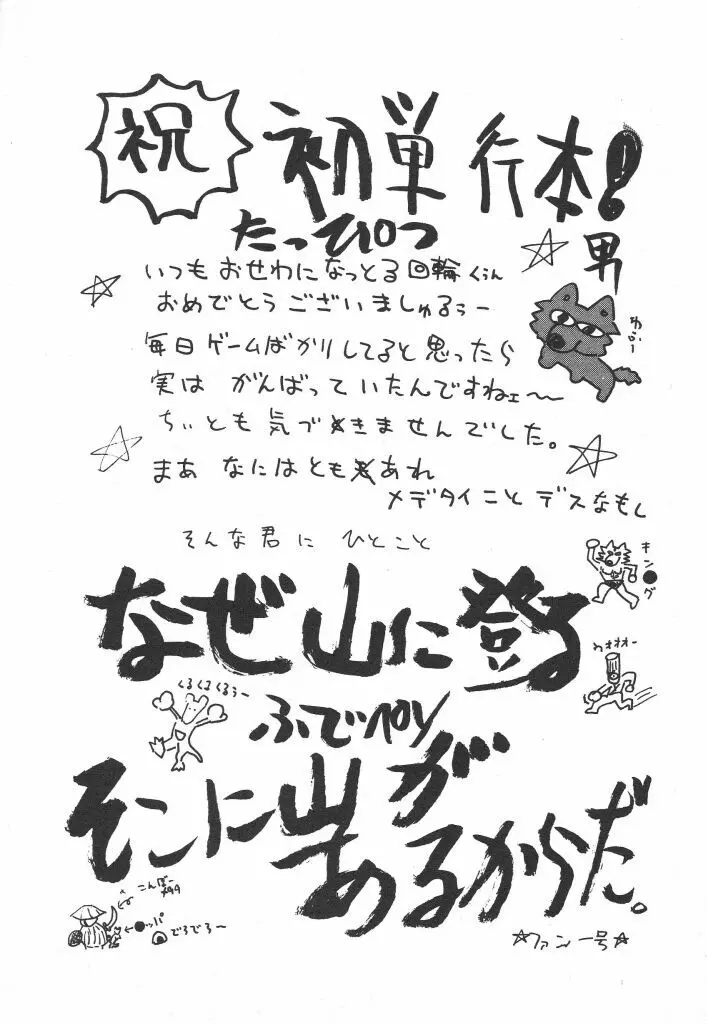 祝
初単行本!
たっぴつ
男
いつもおせわになっとる回輪くぅん
おめでとうございましゅるぅー
わふー
毎日ゲームばかりしてると思ったら
実は がんばっていたんですねェ〜
ちぃとも気づきませんでした。
まあ なにはともあれ
メデタイこと デスなもし
そんな君に ひとこと
キン●グ
なぜ山に登る
ウオオオー
くるくるくるぅー
ふでペン
そこに山が
あるからだ。
こんぼー
←●ッパ
でろでろ〜
☆ファン一号☆